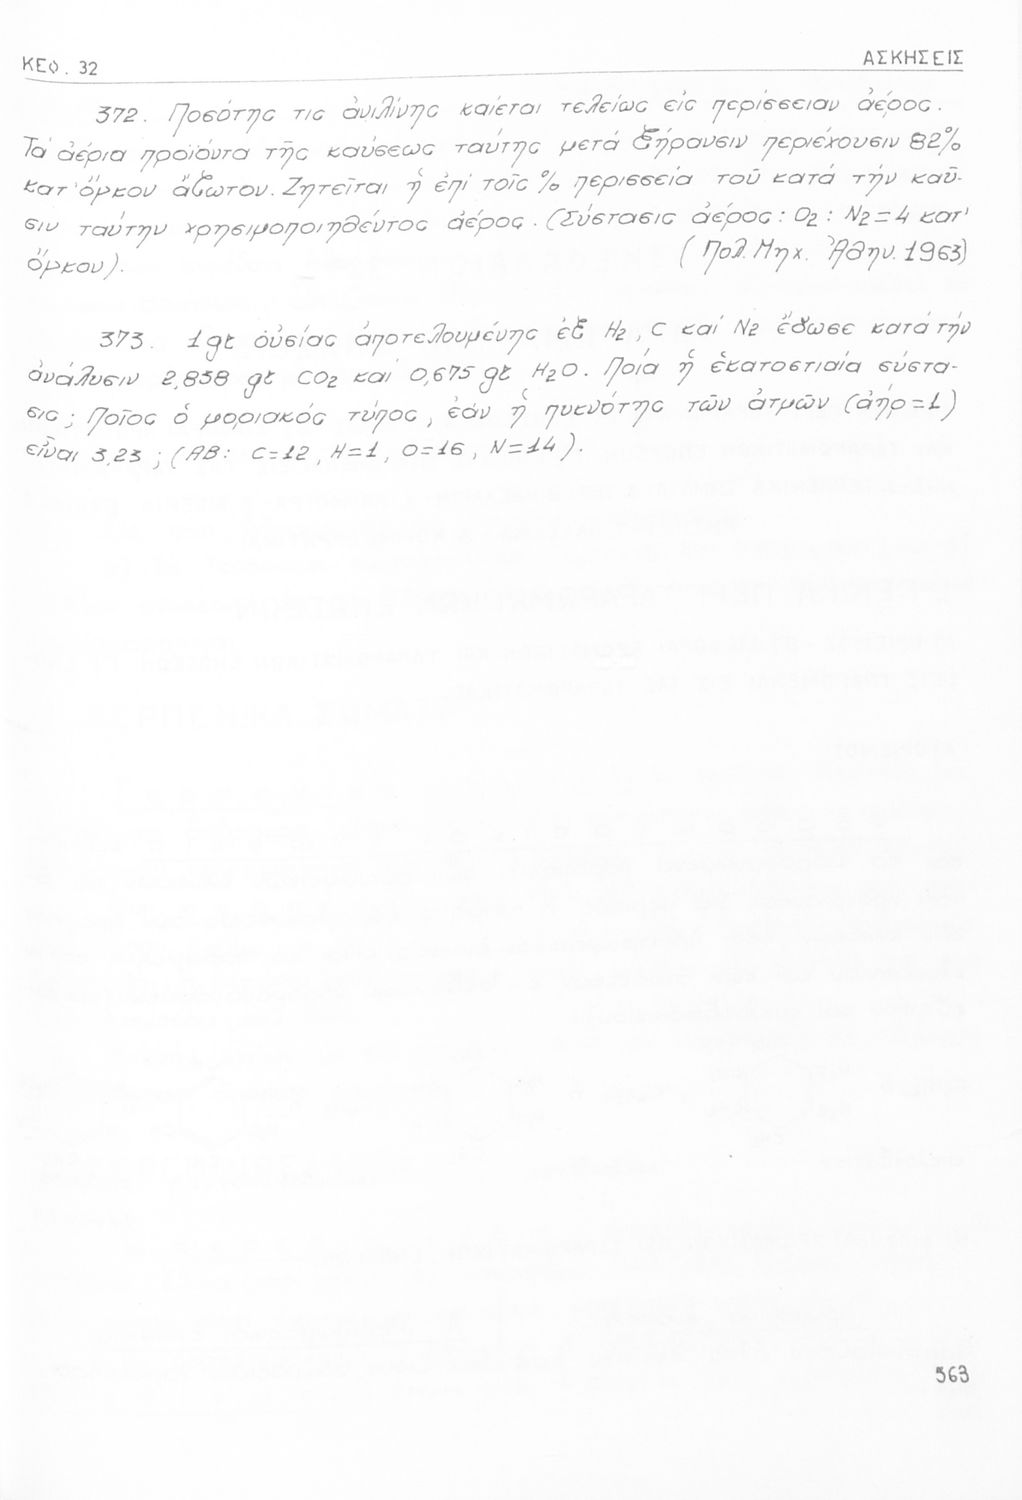 ΚΕΦ. 32
ΑΣΚΗΣΕΙΣ
372. Ποσότης τις ἀνιλίνης καίεται τελείως εἰς περίσσειαν ἀέρος.
Τά ἀέρια προϊόντα τῆς καύσεως ταύτης μετά ξήρανσιν περιέχουσιν 82%
κατ' ὄγκον ἄζωτον. Ζητεῖται ἡ ἐπί τοῖς % περίσσεια τοῦ κατά τήν καῦ-
σιν ταύτην χρησιμοποιηθέντος ἀέρος. (Σύστασις ἀέρος: O2 : N2 = 4 κατ'
ὄγκον).
( Πολ. Μηχ. Ἀθην. 1963)
373. 1 gr οὐσίας ἀποτελουμένης ἐξ H2, C καί N2 ἔδωσε κατά τήν
ἀνάλυσιν 2,838 gr CO2 καί 0,675 gr H2O. Ποία ἡ ἑκατοστιαία σύστα-
σις; Ποῖος ὁ μοριακός τύπος, ἐάν ἡ πυκνότης τῶν ἀτμῶν (ἀήρ = 1)
εἶναι 3,23; (ΑΒ: C=12, H=1, O=16, N=14).
563